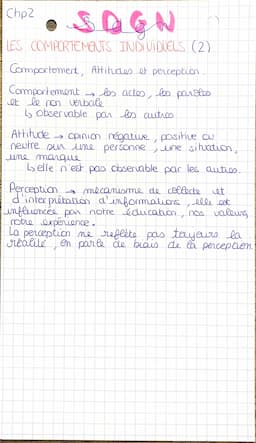 Chp2
SDGN
LES COMPORTEMENTS INDIVIDUELS (2)
Comportement, Attitudes et perception.
Comportement → les actes, les paroles
et le non verbale
↳ Observable par les autres
Attitude → opinion négative, positive ou
neutre sur une personne, une situation,
une marque
↳ elle n'est pas observable par les autres.
Perception → mécanisme de collecte et
d'interprétation d'informations, elle est
influencée par notre éducation, nos valeurs,
notre expérience.
La perception ne reflète pas toujours la
réalité, on parle de biais de la perception